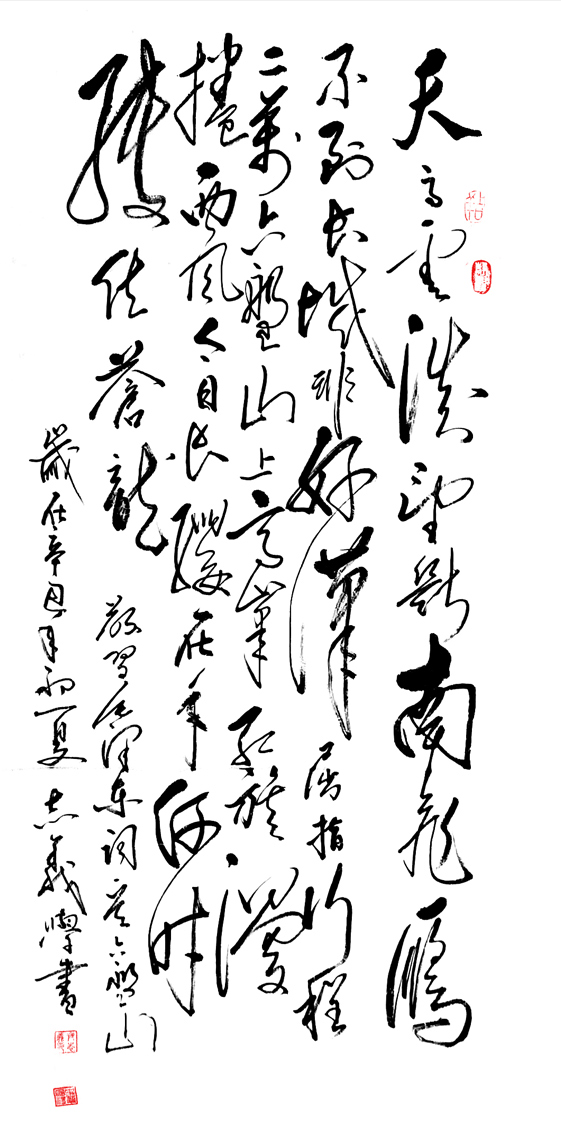 天高雲淡望斷南飛雁
不到長城非好漢屈指行程
二萬六盤山上高峯紅旗漫
捲西風今日長纓在手何時
縛住蒼龍
敬習毛澤東詞六盤山
歲在辛丑年初夏志義學書